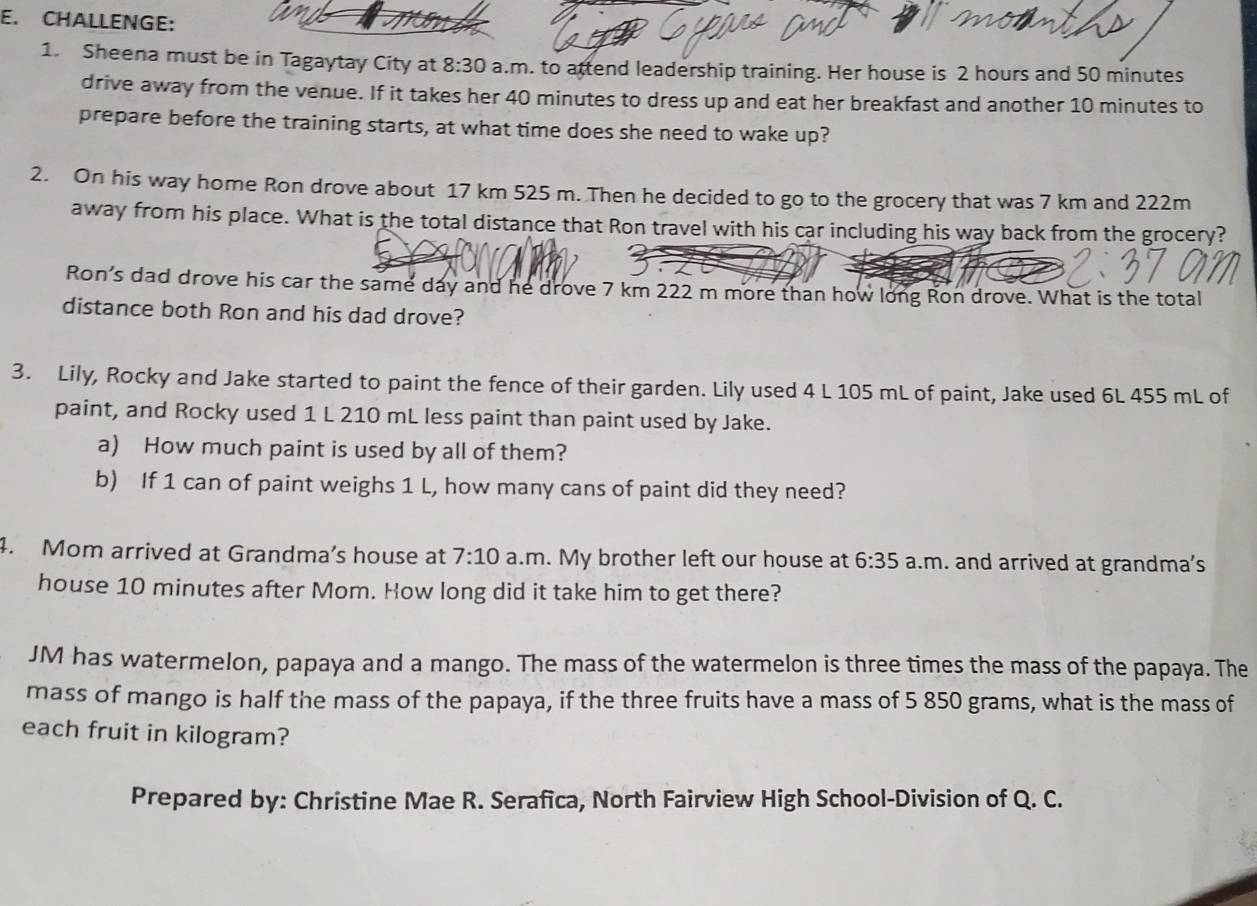 E. CHALLENGE:
and 6 years and 11 moanths
1. Sheena must be in Tagaytay City at 8:30 a.m. to attend leadership training. Her house is 2 hours and 50 minutes
drive away from the venue. If it takes her 40 minutes to dress up and eat her breakfast and another 10 minutes to
prepare before the training starts, at what time does she need to wake up?
2. On his way home Ron drove about 17 km 525 m. Then he decided to go to the grocery that was 7 km and 222m
away from his place. What is the total distance that Ron travel with his car including his way back from the grocery?
3:20 2:37 am
Ron's dad drove his car the same day and he drove 7 km 222 m more than how long Ron drove. What is the total
distance both Ron and his dad drove?
3. Lily, Rocky and Jake started to paint the fence of their garden. Lily used 4 L 105 mL of paint, Jake used 6L 455 mL of
paint, and Rocky used 1 L 210 mL less paint than paint used by Jake.
a) How much paint is used by all of them?
b) If 1 can of paint weighs 1 L, how many cans of paint did they need?
4. Mom arrived at Grandma's house at 7:10 a.m. My brother left our house at 6:35 a.m. and arrived at grandma's
house 10 minutes after Mom. How long did it take him to get there?
JM has watermelon, papaya and a mango. The mass of the watermelon is three times the mass of the papaya. The
mass of mango is half the mass of the papaya, if the three fruits have a mass of 5 850 grams, what is the mass of
each fruit in kilogram?
Prepared by: Christine Mae R. Serafica, North Fairview High School-Division of Q. C.